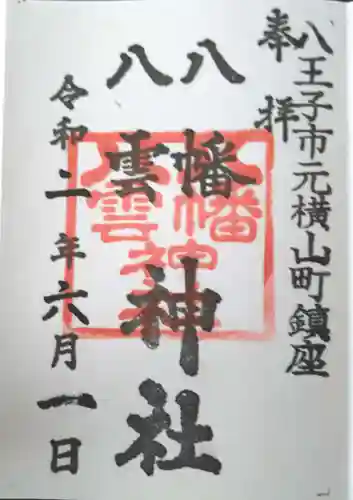 奉拝
八王子市元横山町鎮座
八幡
八雲
神社
令和二年六月一日